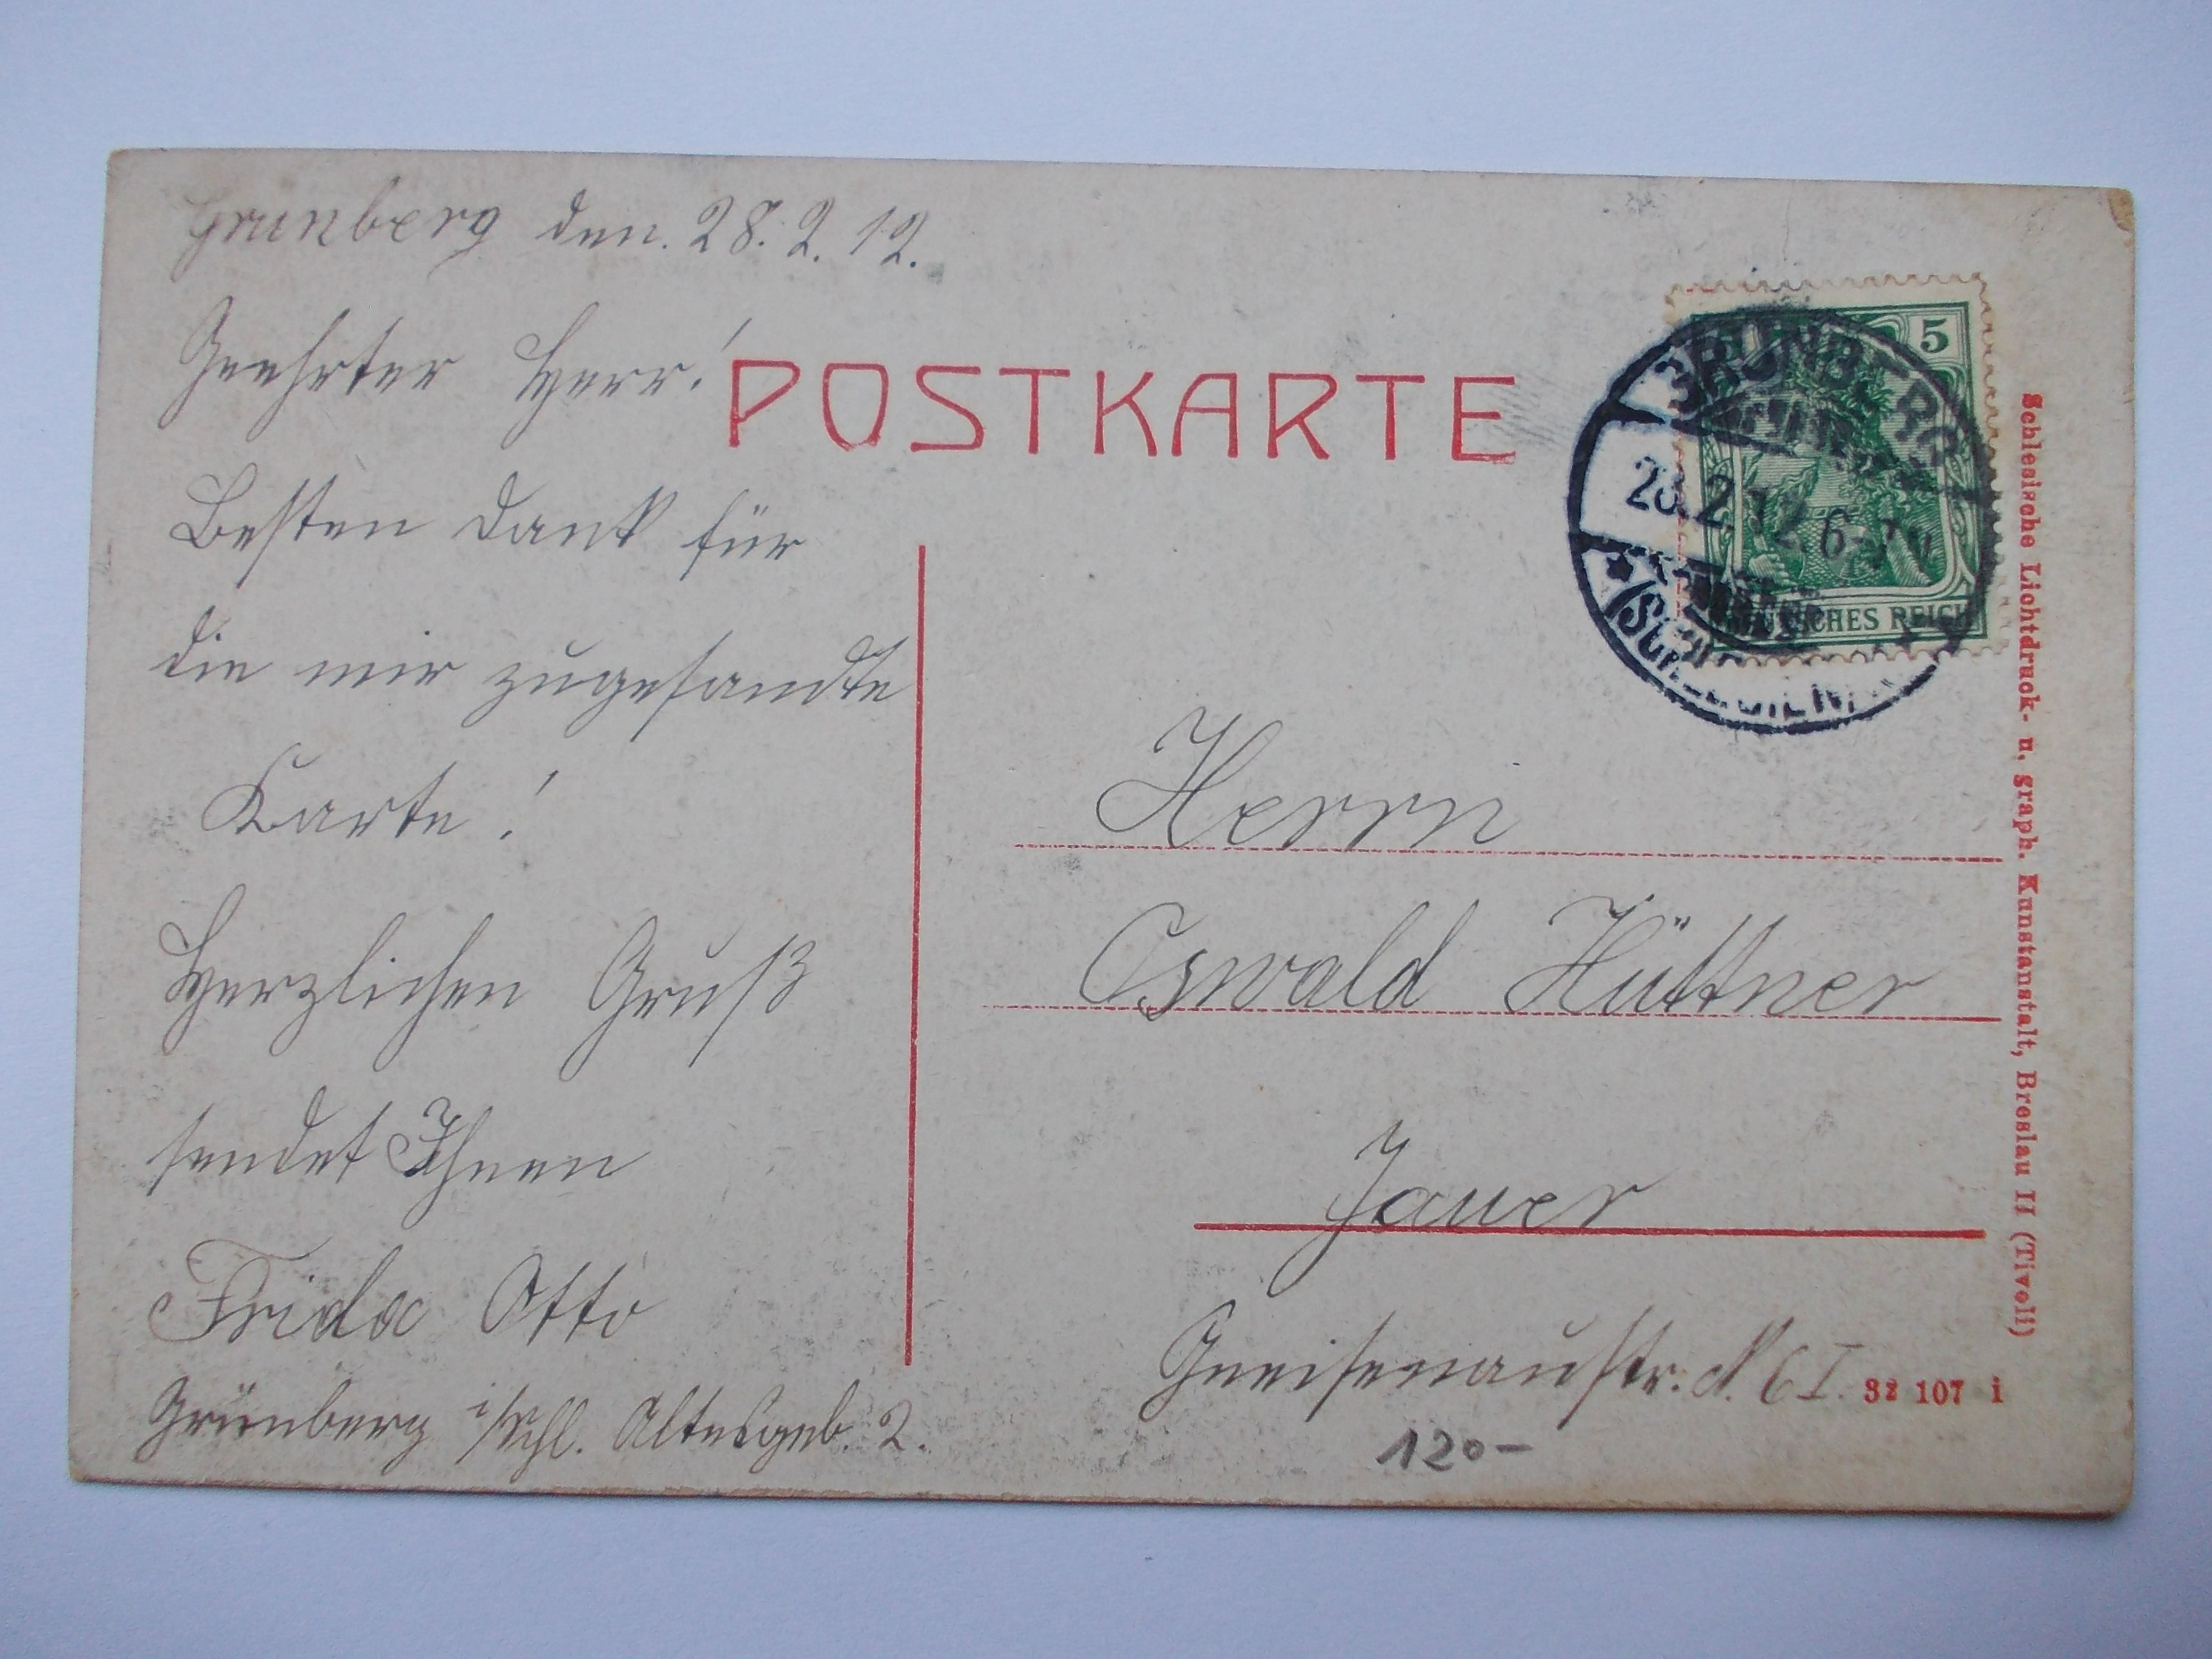 Grünberg den. 28. 2. 12.
Geehrter Herr!
Besten Dank für
die mir zugesandte
Karte!
Herzlichen Gruß
sendet Ihnen
Frida Otto
Grünberg i/Schl. Altesgeb. 2.
POSTKARTE
5
DEUTSCHES REICH
GRÜNBERG
28.2.12. 6-7N
(SCHLESIEN)
Herrn
Oswald Hüttner
Jauer
Gneisenaustr. N. 6 I.
32 107 i
120-
Schlesische Lichtdruck- u. graph. Kunstanstalt, Breslau II (Tivoli)